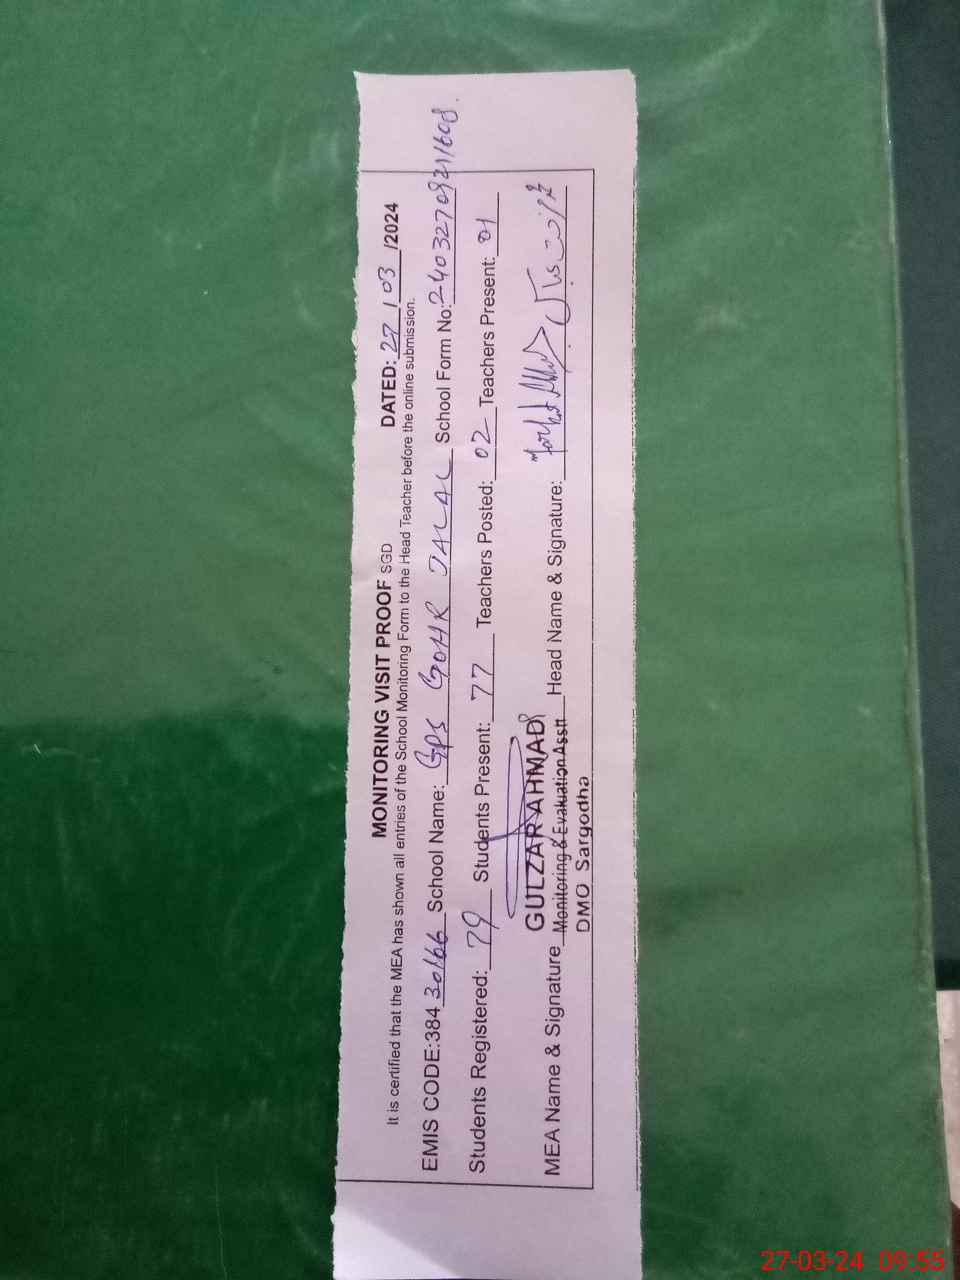 MONITORING VISIT PROOF SGD DATED: 27/03/2024
It is certified that the MEA has shown all entries of the School Monitoring Form to the Head Teacher before the online submission.
EMIS CODE:384 30166 School Name: GPS GOHR JALAL School Form No:
Students Registered: 79 Students Present: 77 Teachers Posted: 02 Teachers Present: 01
MEA Name & Signature GULZAR AHMAD Head Name & Signature:
Monitoring & Evaluation Asstt
DMO Sargodha
27-03-24 09:55